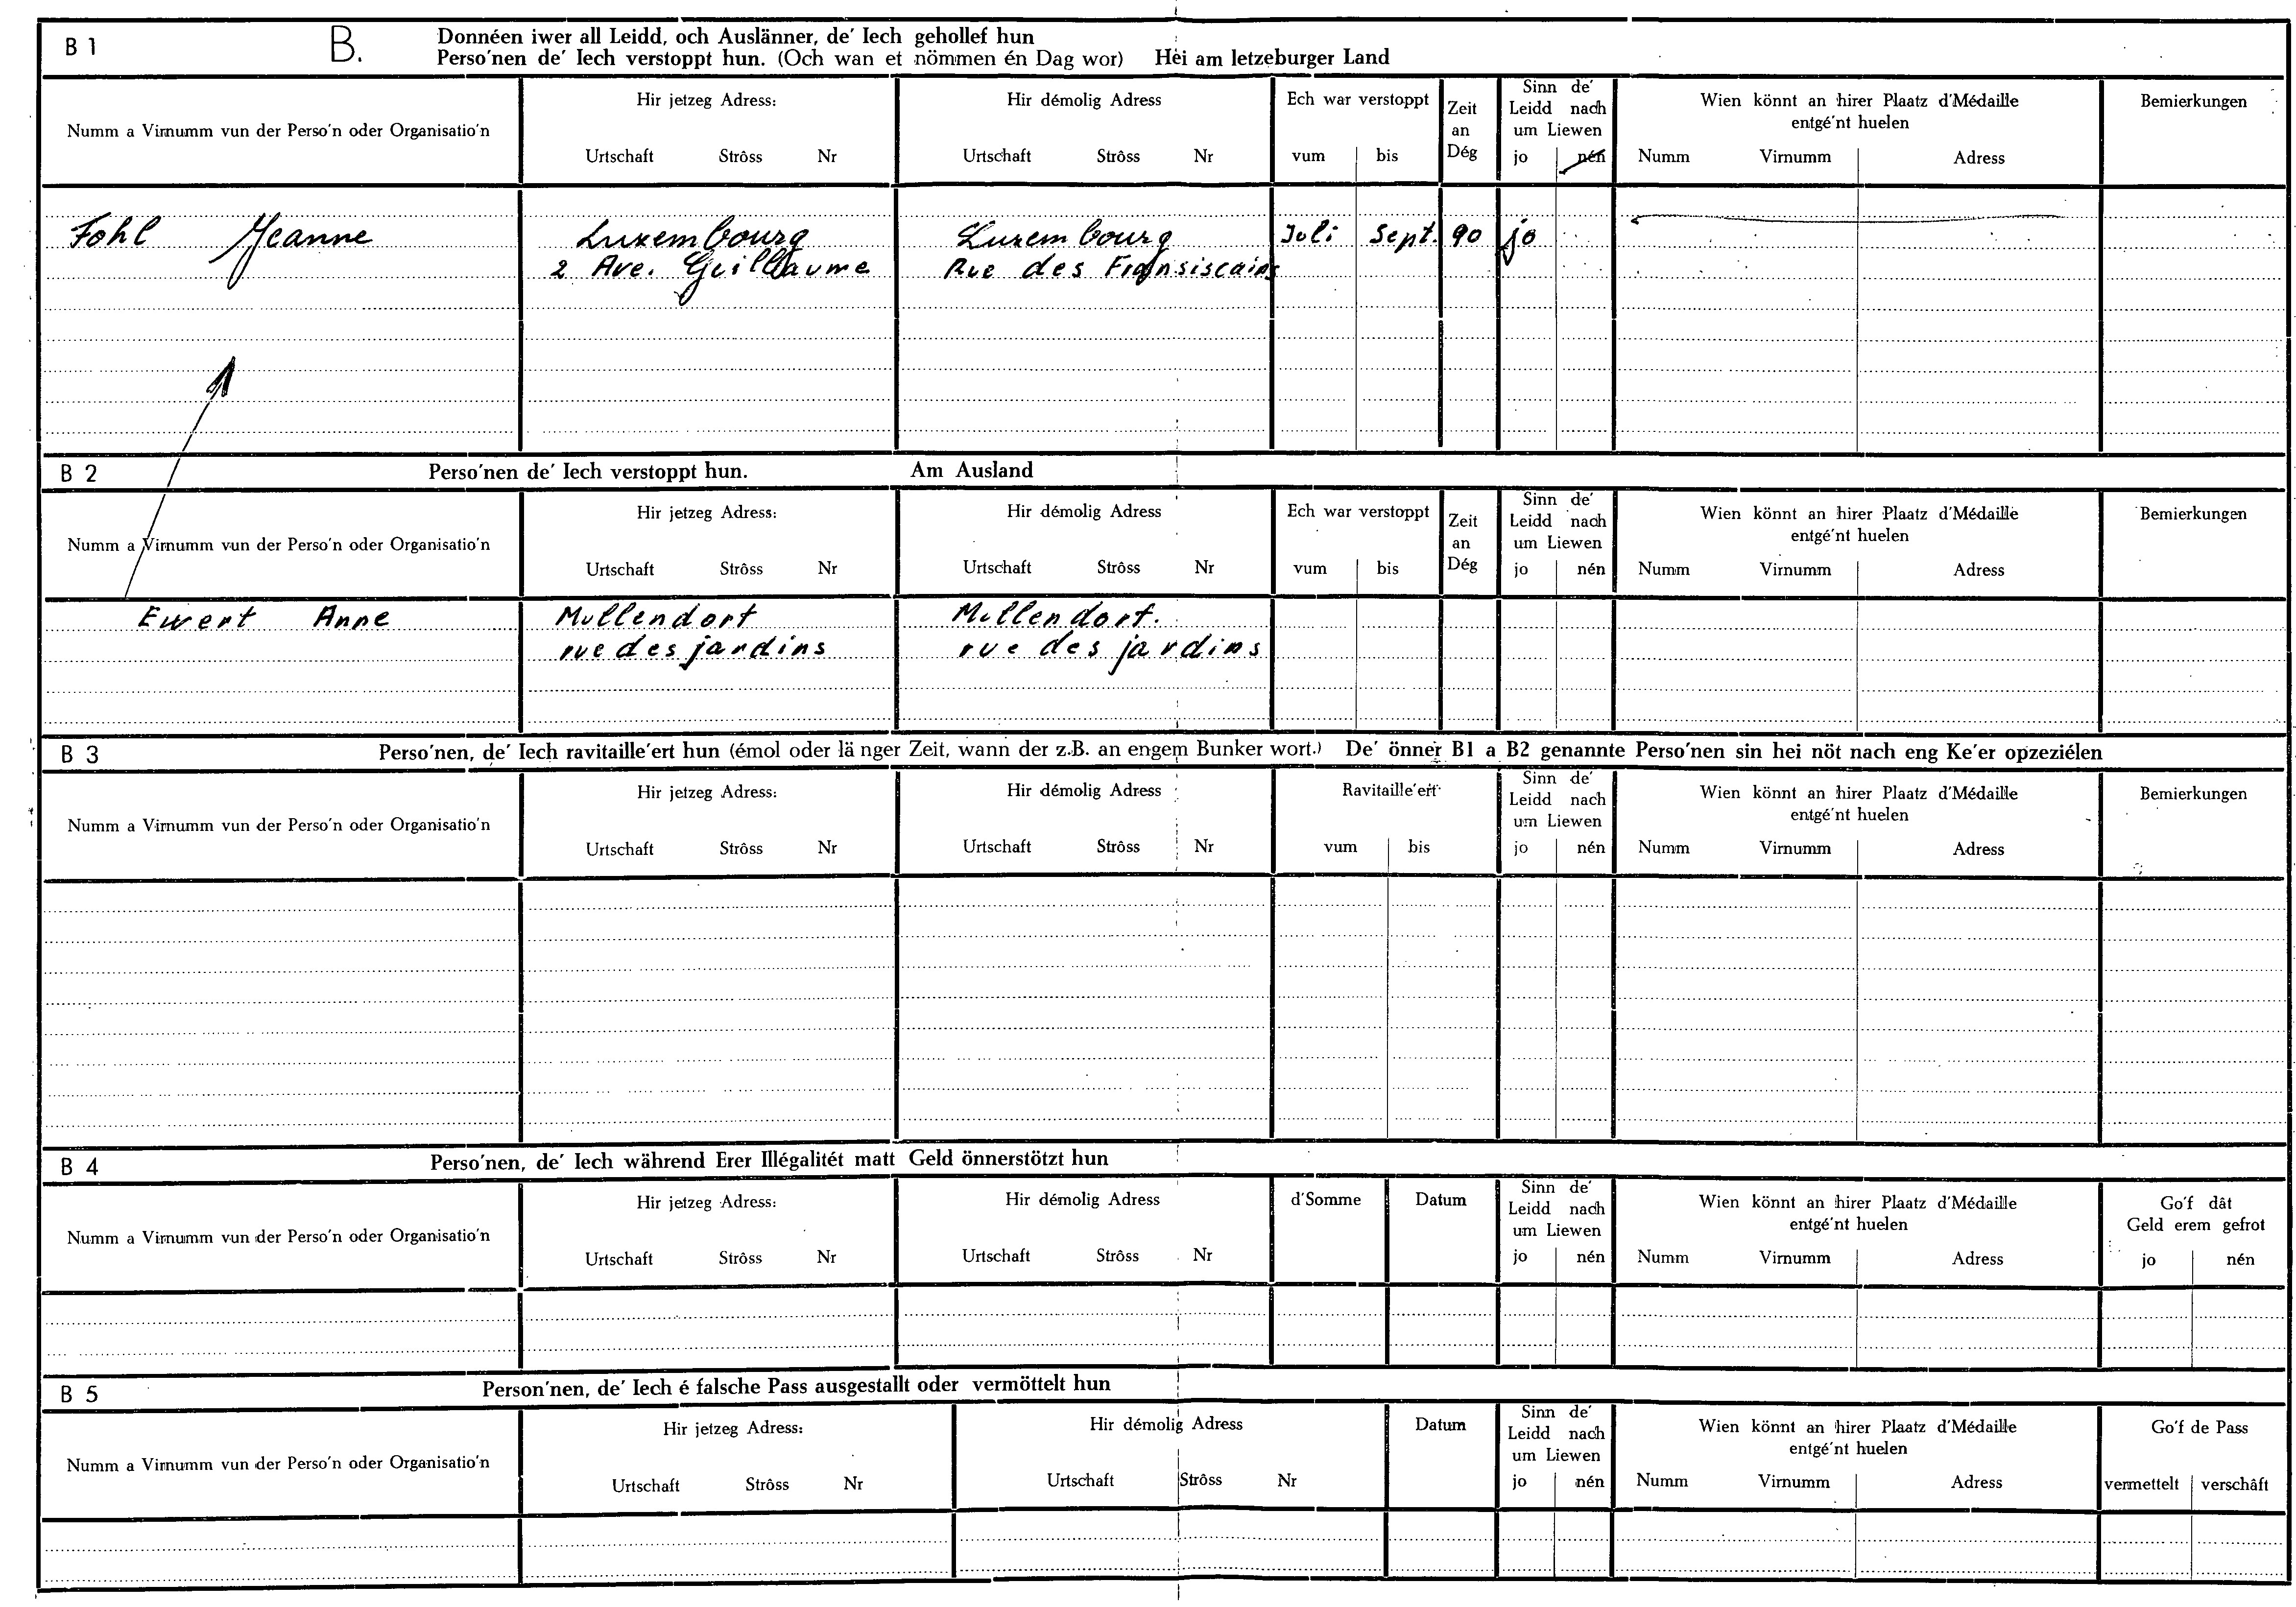 B 1 B. Donnéen iwer all Leidd, och Auslänner, de' Iech gehollef hun
Perso'nen de' Iech verstoppt hun. (Och wan et nömmen én Dag wor) Hei am letzeburger Land
Numm a Virnumm vun der Perso'n oder Organisatio'n
Hir jetzeg Adress:
Urtschaft Strôss Nr
Hir démolig Adress
Urtschaft Strôss Nr
Ech war verstoppt
vum bis
Zeit
an
Dég
Sinn de'
Leidd nach
um Liewen
jo nén
Wien könnt an hirer Plaatz d'Médaille
entgé'nt huelen
Numm Virnumm Adress
Bemierkungen
Fohl Jeanne Luxembourg Luxembourg Juli Sept. 90 jo
2 Ave. Geillaume Rue des Fransiscains
B 2 Perso'nen de' Iech verstoppt hun. Am Ausland
Numm a Virnumm vun der Perso'n oder Organisatio'n
Hir jetzeg Adress:
Urtschaft Strôss Nr
Hir démolig Adress
Urtschaft Strôss Nr
Ech war verstoppt
vum bis
Zeit
an
Dég
Sinn de'
Leidd nach
um Liewen
jo nén
Wien könnt an hirer Plaatz d'Médaille
entgé'nt huelen
Numm Virnumm Adress
Bemierkungen
Ewert Anne Mullendorf Mullendorf.
rue des jardins rue des jardins
B 3 Perso'nen, de' Iech ravitaille'ert hun (émol oder länger Zeit, wann der z.B. an engem Bunker wort.) De' önner B1 a B2 genannte Perso'nen sin hei nöt nach eng Ke'er opzeziélen
Numm a Virnumm vun der Perso'n oder Organisatio'n
Hir jetzeg Adress:
Urtschaft Strôss Nr
Hir démolig Adress
Urtschaft Strôss Nr
Ravitaille'ert
vum bis
Sinn de'
Leidd nach
um Liewen
jo nén
Wien könnt an hirer Plaatz d'Médaille
entgé'nt huelen
Numm Virnumm Adress
Bemierkungen
B 4 Perso'nen, de' Iech während Erer Illégalitét matt Geld önnerstötzt hun
Numm a Virnumm vun der Perso'n oder Organisatio'n
Hir jetzeg Adress:
Urtschaft Strôss Nr
Hir démolig Adress
Urtschaft Strôss Nr
d'Somme
Datum
Sinn de'
Leidd nach
um Liewen
jo nén
Wien könnt an hirer Plaatz d'Médaille
entgé'nt huelen
Numm Virnumm Adress
Go'f dât
Geld erem gefrot
jo nén
B 5 Person'nen, de' Iech é falsche Pass ausgestallt oder vermöttelt hun
Numm a Virnumm vun der Perso'n oder Organisatio'n
Hir jetzeg Adress:
Urtschaft Strôss Nr
Hir démolig Adress
Urtschaft Strôss Nr
Datum
Sinn de'
Leidd nach
um Liewen
jo nén
Wien könnt an hirer Plaatz d'Médaille
entgé'nt huelen
Numm Virnumm Adress
Go'f de Pass
vermettelt verschâft